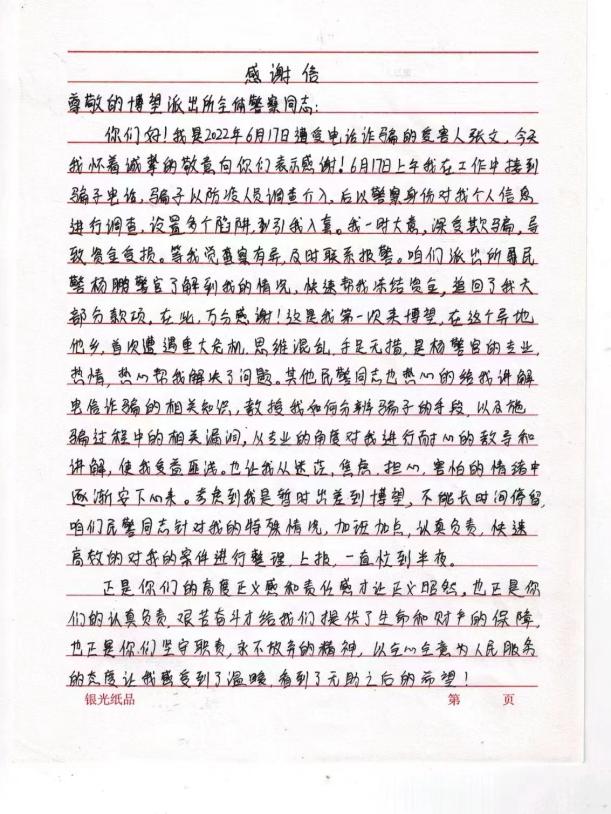 感谢信
尊敬的博望派出所全体警察同志：
你们好！我是2022年6月17日遭受电话诈骗的受害人张文，今天
我怀着诚挚的敬意向你们表示感谢！6月17日上午我在工作中接到
骗子电话，骗子以防疫人员调查介入，后以警察身份对我个人信息
进行调查，设置多个陷阱，引我入套。我一时大意，深受欺骗，导
致资金受损。等我觉察有异，及时联系报警。咱们派出所民
警杨鹏警官了解到我的情况，快速帮我冻结资金，追回了我大
部分款项，在此，万分感谢！这是我第一次来博望，在这个异地
他乡，首次遭遇重大危机，思维混乱，手足无措，是杨警官的专业，
热情，热心帮我解决了问题。其他民警同志也热心的给我讲解
电信诈骗的相关知识，教授我如何分辨骗子的手段，以及施
骗过程中的相关漏洞，从专业的角度对我进行耐心的教导和
讲解，使我受益匪浅。也让我从迷茫，焦虑，担心，害怕的情绪中
逐渐安下心来。考虑到我是暂时出差到博望，不能长时间停留，
咱们民警同志针对我的特殊情况，加班加点，认真负责，快速
高效的对我的案件进行整理，上报，一直忙到半夜。
正是你们的高度正义感和责任感才让正义昭然。也正是你
们的认真负责，艰苦奋斗才给我们提供了生命和财产的保障，
也正是你们坚守职责，永不放弃的精神，以全心全意为人民服务
的态度让我感受到了温暖，看到了无助之后的希望！
银光纸品 第 页